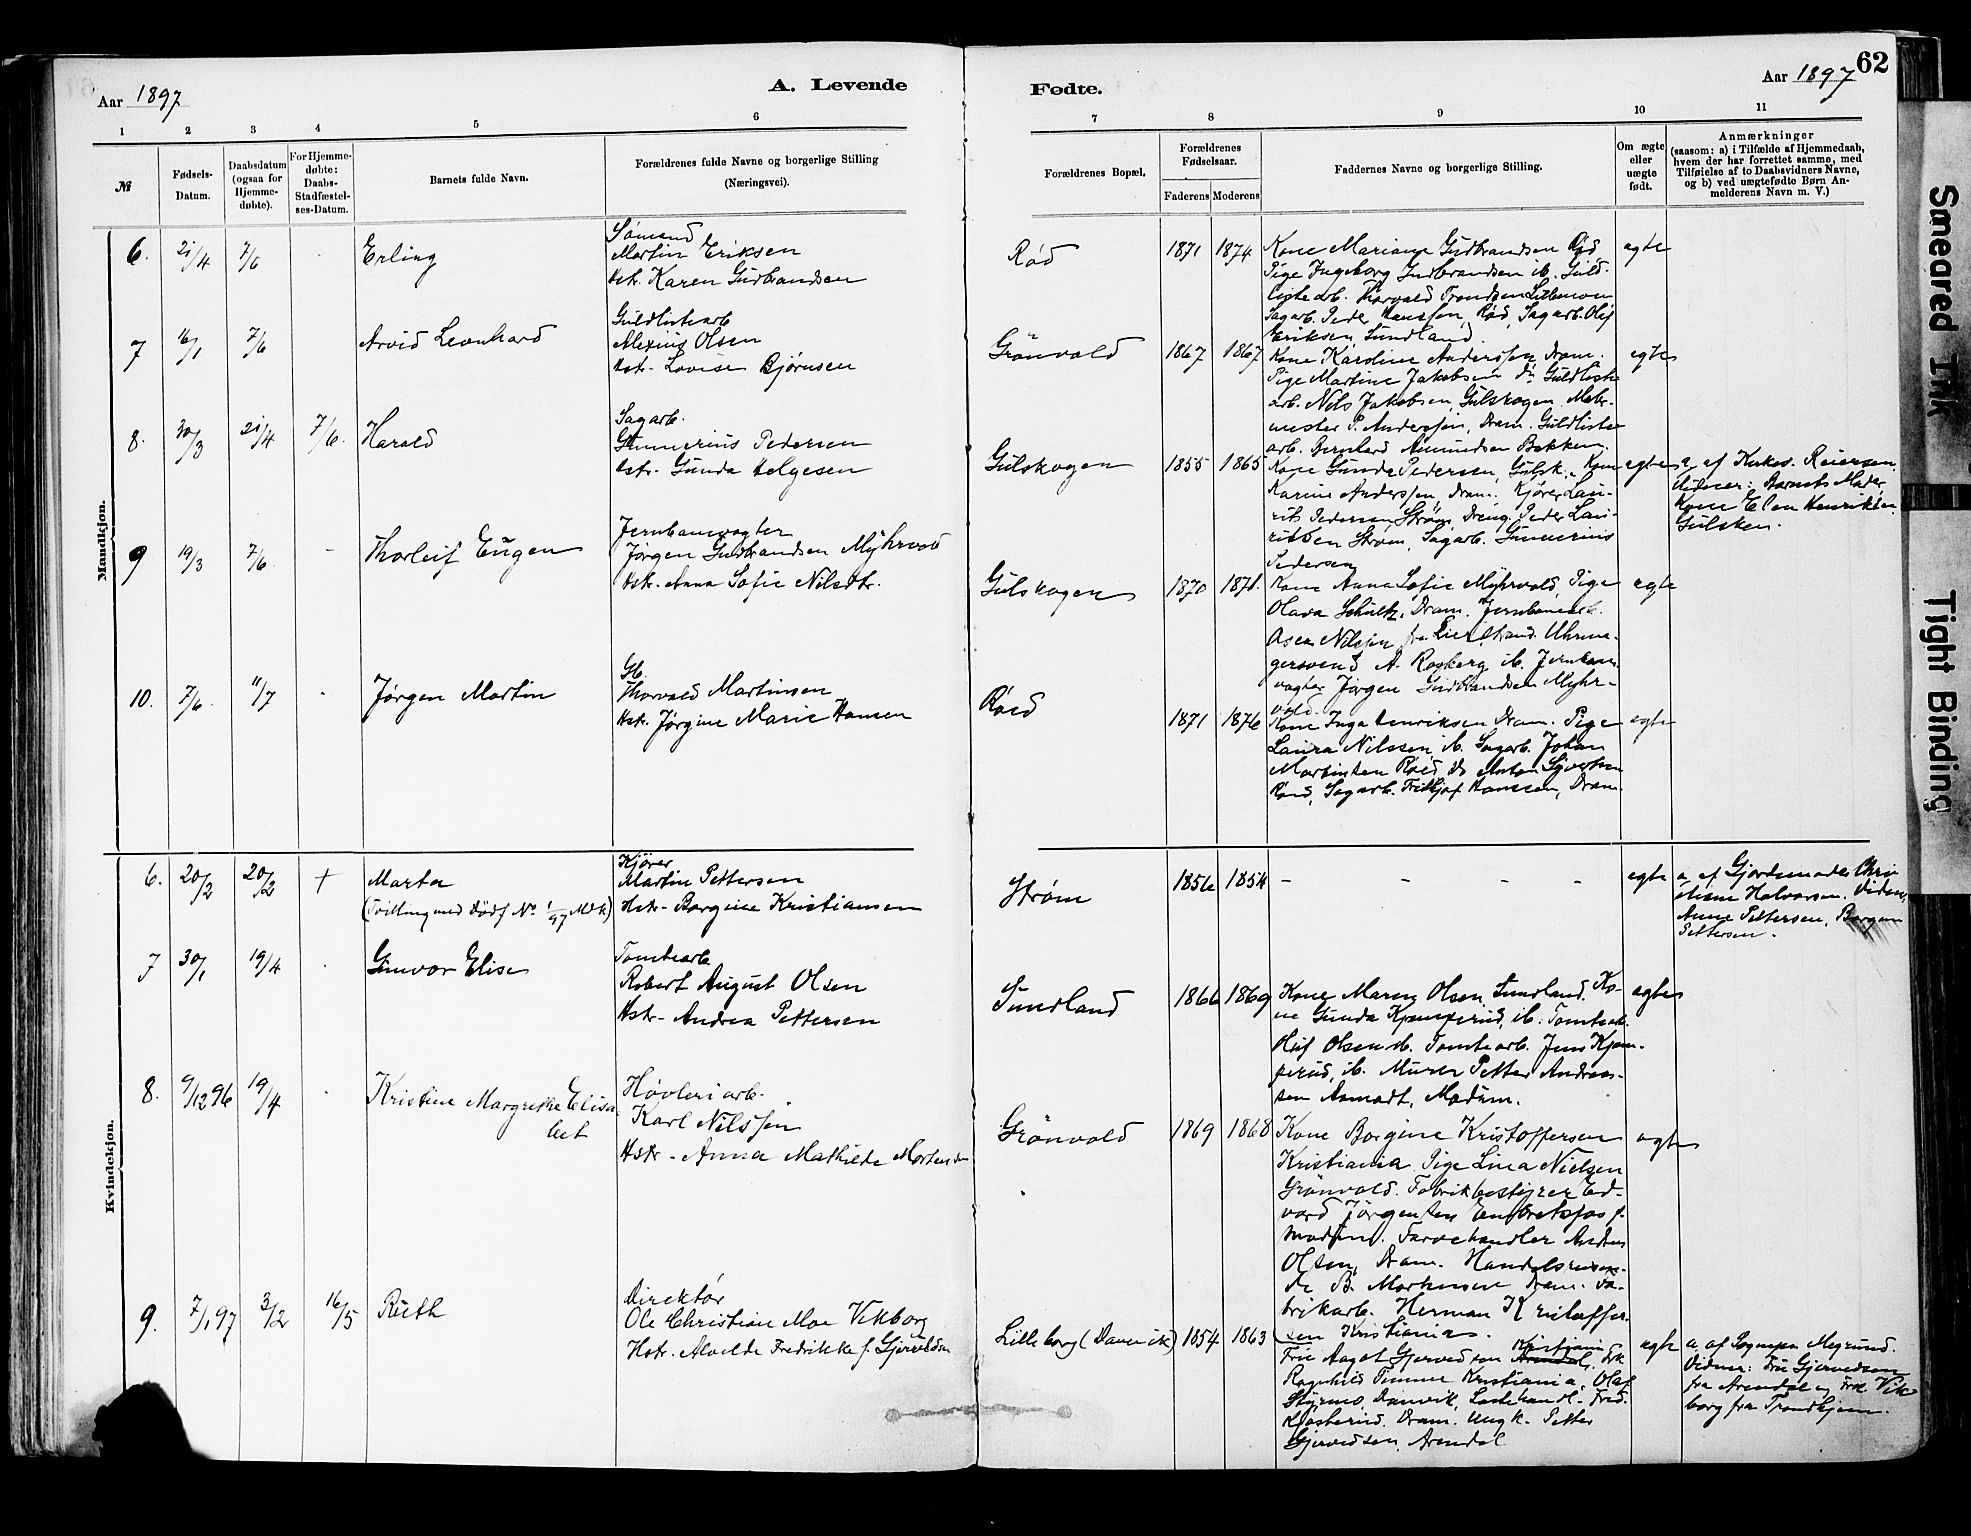 62
Aar 1897
A. Levende
Fødte.
Aar 1897
1 2 3 4 5 6 7 8 9 10 11
№
Fødsels-
Datum.
Daabsdatum
(ogsaa for
Hjemme-
døbte).
For Hjemme-
døbte:
Daabs-
Stadfæstel-
ses-Datum.
Barnets fulde Navn.
Forældrenes fulde Navne og borgerlige Stilling
(Næringsvei).
Forældrenes Bopæl,
Forældrenes
Fødselsaar.
Faderens Moderens
Faddernes Navne og borgerlige Stilling.
Om ægte
eller
uægte
født.
Anmærkninger
(saasom: a) i Tilfælde af Hjemmedaab,
hvem der har forrettet samme, med
Tilføielse af to Daabsvidners Navne,
og b) ved uægtefødte Børn An-
melderens Navn m. V.)
Mandkjøn.
6. 21/4 7/6 Erling
Sømand
Martin Eriksen
Hstr. Karen Gudbrandsen
Rød 1871 1874
Kone Mariane Gudbrandsen Rød
Pige Ingeborg Gudbrandsen ib. Guld-
listearb. Thorvald Trondsen
Sagarb. Peder Hanssen, Rød, Sagarb. Olaf
Eriksen, Sundland
egte
7 16/1 7/6 Arvid Leonhard
Guldlistearb
Alexius Olsen
Hstr. Lovise Bjørnsen
Grönvold 1867 1867
Kone Karoline Anderssen, Dram.
Pige Martine Jakobsen do Guldliste
arb. Nils Jakobsen, Gulskogen, Maler-
mester P. Anderssen, Dram. Guldliste
arb. Bernhard Amundsen Bakken.
egte
8. 30/3 21/4 7/6. Harald
Sagarb.
Gunnerius Pedersen
Hstr. Gunda Helgesen
Gulskogen 1855 1865
Kone Gunda Pedersen, Gulsk. Kone
Karine Anderssen, Dram. Kjører Lau-
rits Pedersen, Strøm, Dreng Peder Lau-
ritsen Strøm, Sagarb. Gunnerius
Pedersen
egte
a. af Kirkes. Reiersen
Vidner: Barnets Moder,
Kone Elen Henriksen
Gulsken.
9 19/3 7/6. - Thorleif Eugen
Jernbanevogter
Jørgen Gudbrandsen Myhrvold
Hstr. Anna Sofie Nilsdtr.
Gulskogen 1870 1871.
Kone Anna Sofie Myhrvold, Pige
Olava Schultz, Dram. Jernbanearb.
Nilssen fra Lierstrand. Uhrma-
gersvend A. Rosberg ib. Jernbane
vogter Jørgen Gudbrandsen Myhr-
vold.
egte
10. 7/6. 11/7 Jørgen Martin
Gb.
Thorvald Martinsen
Hstr. Jørgine Marie Hansen
Røed 1871 1876
Kone Inga Henriksen Dram. Pige
Laura Nilssen ib. Sagarb. Johan
Martinsen Røed Do Anton Sjvertsen
Røed, Sagarb. Fritjof Hanssen, Dram.
egte
Kvindekjøn.
6. 20/2 20/2 + Marta
(Tvilling med Dødf. No 1/97 Mdk)
Kjører
Martin Pettersen
Hstr- Borgine Kristiansen
Strøm 1856 1854 - - - -
egte
a. af Gjordemoder Chri-
stiane Halvorsen. Vidner,
Anne Pettersen, Borgine
Pettersen.
7 30/1 19/4 Gunvor Elise
Tomtearb
Robert August Olsen
Hstr- Andrea Pettersen
Sundland 1866 1869
Kone Maren Olsen, Sundland. Ko-
ne Gunda Kjemperud, ib. Tomtearb.
Olaf Olsen ib. Tomtearb. Jens Kjem-
perud, ib. Murer Petter Andreas-
sen Aamodt, Modum.
egte
8. 9/12 96 19/4 Kristine Margrethe Elisa
bet
Høvleriarb.
Karl Nilssen
Hstr- Anna Mathilde Mortensen
Grönvold 1869 1868
Kone Borgine Kristoffersen
Kristiania Pige Lina Nielsen
Grönvold. Fabrikbestyrer Ed-
vard Jørgensen Embretsfos f.
Modum. Farvehandler Anders
Olsen, Dram. Handelsreisen-
de B. Mortensen Dram. Fa-
brikarb. Herman Kristoffer-
sen Kristiania.
egte
9. 7/1 97 3/2 16/5 Ruth
Direktør
Ole Christian Moe Vikborg
Hstr. Alvilde Fredrikke f. Gjervedsen
Lilleborg (Danvik) 1854 1863
Frue Aagot Gjervedsen Kristiania Arendal, Frk
Ragnhild Timme Kristiania, Olaf
Styrmo, Danvik, Lastehandl. Fred.
Kjøsterud. Dram. Ungk. Petter
Gjervedsen, Arendal
egte
a af Sognepr. Megrund.
Vidner: Fru Gjervedsen
fra Arendal og Frk Vik-
borg fra Trondhjem.
Smeared Ink
Tight Binding